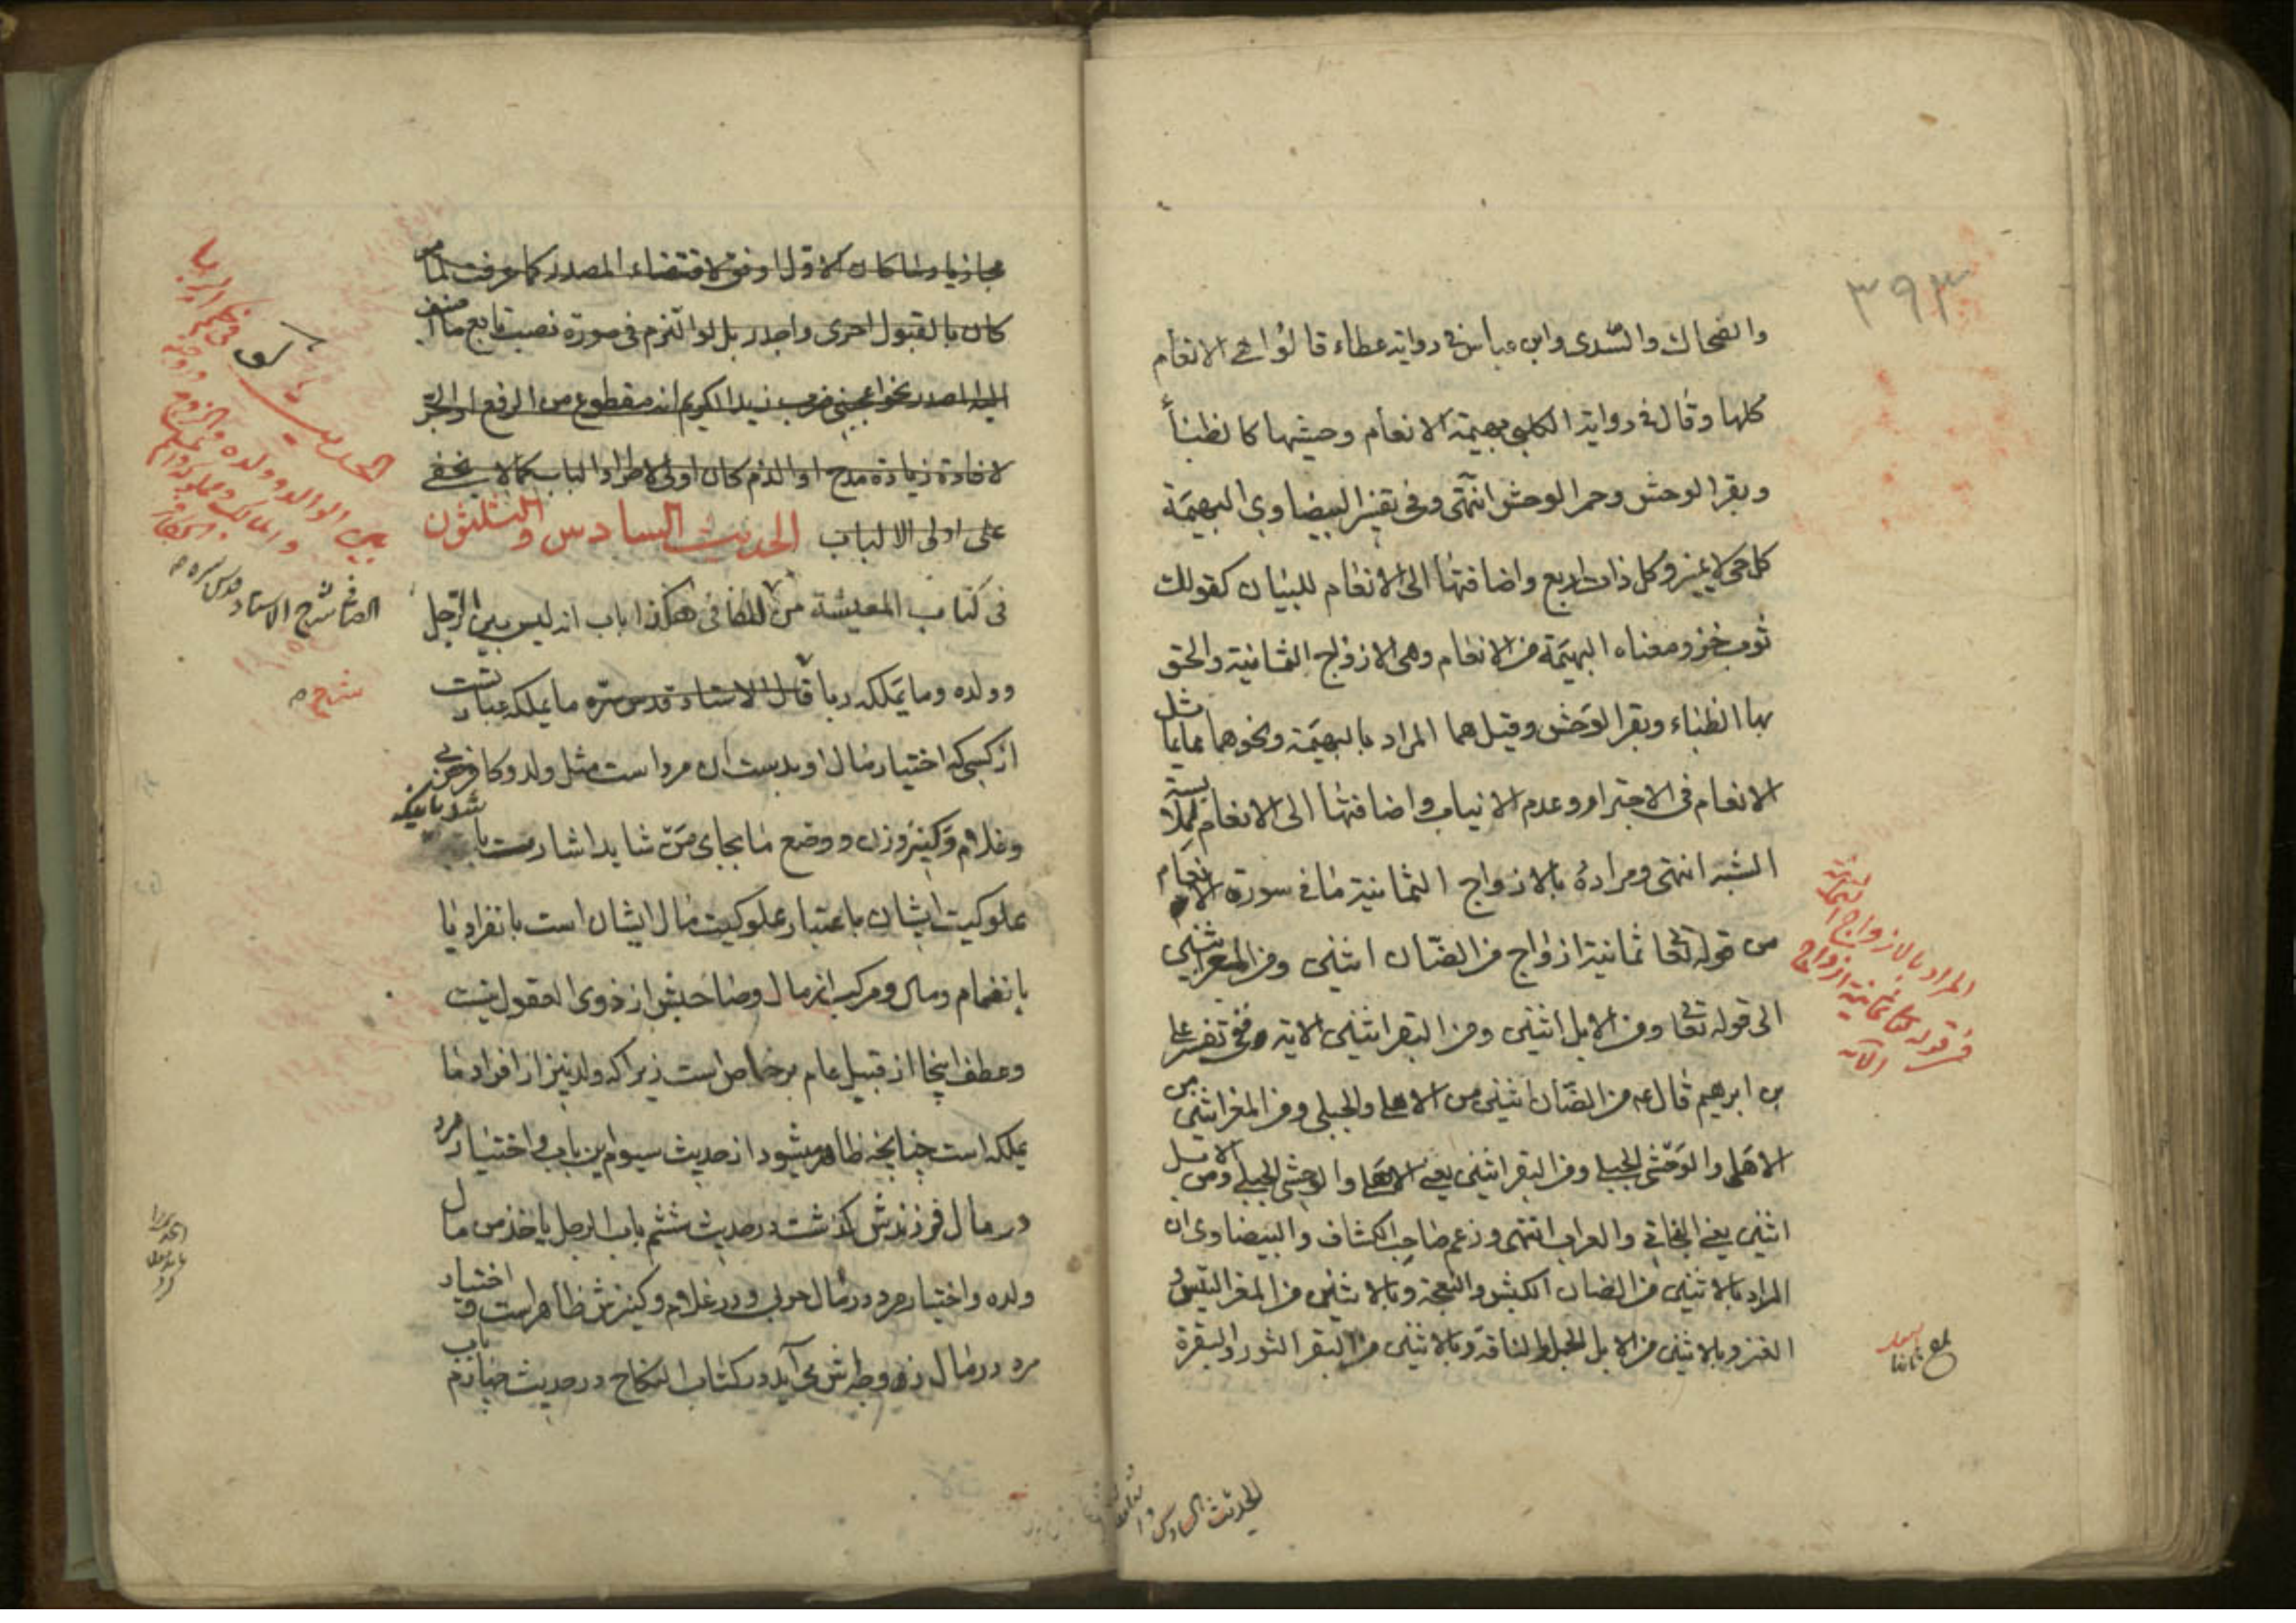 ٣٩٣
والضحاك والسدى وابن عباس فى رواية عطاء قالوا هى الانعام
كلها وقال فى رواية الكلبى بهيمة الانعام وحشيها كالظباء
وبقر الوحش وحمر الوحش انتهى وفى تفسير البيضاوى البهيمة
كل حى لا يميز وكل ذات اربع واضافتها الى الانعام للبيان كقولك
ثوب خز ومعناه البهيمة من الانعام وهى الازواج الثمانية والحق
بها الظباء وبقر الوحش وقيل هما المراد بالبهيمة ونحوهما مما يماثل
الانعام فى الاجترار وعدم الانياب واضافتها الى الانعام لملابسة
الشبه انتهى ومراده بالازواج الثمانية ما فى سورة الانعام
من قوله تعا ثمانية ازواج من الضأن اثنين ومن المعز اثنين
الى قوله تعا ومن الابل اثنين ومن البقر اثنين الاية وفى تفسير على
بن ابرهيم قال ع من الضأن اثنين من الاهلى والجبلى ومن المعز اثنين من
الاهلى والوحشى الجبلى ومن البقر اثنين يعنى الاهلى والوحشى الجبلى ومن الابل
اثنين يعنى البخاتى والعراب انتهى وزعم صاحب الكشاف والبيضاوى ان
المراد بالاثنين من الضان الكبش والنعجة وبالاثنين من المعز التيس و
العنز وبالاثنين من الابل الجمل والناقة وبالاثنين من البقر الثور والبقرة
المراد بالازواج الثمانية
من قوله تعا ثمانية ازواج
الآية
بلغ
الحديث السادس و
مجازيا ولما كان الاول اوفق لاقتضاء المصدر كما عرفت
كان بالقبول احرى واجدر بل لو التزم فى صورة نصب تابع ما اضيف
اليه المصدر نحو اعجبنى ضرب زيد الكريم انه مقطوع من الرفع او الجر
لافادة زيادة مدح او الذم كان اولى لاطراد الباب كما لا يخفى
على اولى الالباب الحديث السادس والثلثون
فى كتاب المعيشة من الكافى هكذا باب انه ليس بين الرجل
وولده وما يملكه ربا قال الاستاد قدس سره ما يملكه عبارتست
از كسى كه اختيار مال او بدست آن مرد است مثل ولد وكافر حربى
وغلام وكنيز وزن ووضع ما بجاى من شايد اشارت باشد باينكه
مملوكيت ايشان باعتبار مملوكيت مال ايشان است بانفراد يا
بانضمام ومال ومركب از مال وصاحبش از ذوى العقول نيست
وعطف اينجا از قبيل عام بر خاص است زيرا كه ولد نيز از افراد ما
يملكه است چنانچه ظاهر ميشود از حديث سيوم اين باب واختيار مرد
در مال فرزندش گذشت در حديث ششم باب الرجل ياخذ من مال
ولده واختيار مرد در مال حربى ودر غلام وكنيزش ظاهر است واختيار
مرد در مال زن مى آيد در كتاب النكاح در حديث چهارم باب
الحديث
بين الوالد وولده والزوج وزوجته
والمالك ومملوكه
الصافى شرح الاستاد قدس سره
شرح